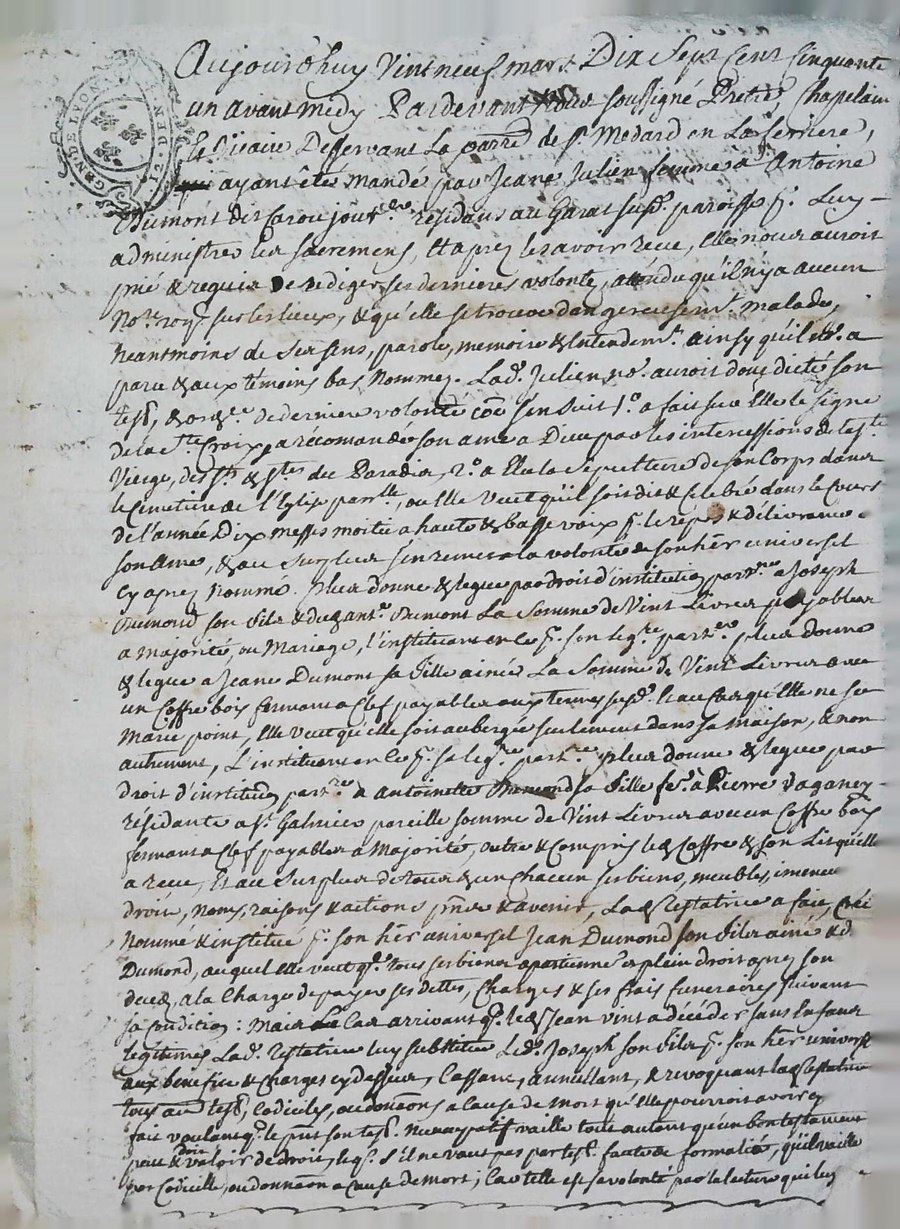 GEND. DE LYON
Aujourd'huy Vint neuf mars Dix Sept Cent Cinquante
un avant midy Pardevant Nous soussigné Pretre, Chapelain
et Vicaire Desservant La parre de st. Medard en La ferriere,
ayant êtés mandé par Jeane Julien femme a Antoine
Dumont dit Carou jour résidans au Garat susd. paroisse pr. Luy
administrer les sacremens, Et aprez les avoir receu, elle nous auroit
prié & requis De rediger ses dernieres volontez, atendu qu'il n'y a aucun
Nore. roy. sur les lieux, & qu'elle se trouve dangereusemt. malade,
neantmoins de ses sens, parole, memoire & Entendemt. ainsy qu'il ns. a
paru & aux témoins bas Nommez. Lad. Julien ns. auroit donc dicté son
test, & de derniere volonté coe s'en suit 1o. a fait sur Elle le signe
de la ste. Croix, a récomandé son ame a Dieu par les intercessions de la ste.
Vierge, des sts. & stes. du Paradis, 2o. a Elu la sépulture de son Corps dans
le Cimetiere de l'Eglise parlle, ou Elle veut qu'il soit dit & celebré dans le Cours
de l'année Dix messes moitié a haute & basse voix pr. le répos & délivrance
son Ame, & au surplus s'en remet a la volonté de son hér universel
cy aprez Nommé. Plus donne & legue par droit d'institution partre a Joseph
Dumond son fils & dud. ant. Dumont La Somme de Vint Livres payables
a majorité, ou Mariage, l'instituant en ce pr. son legre. partre. plus donne
& legue a Jeane Dumont sa fille ainée La Somme de Vint Livres avec
un Coffre bois fermant a Clef payables aux termes susd. Et au Cas qu'Elle ne se
Marie point, Elle veut qu'elle soit aubergée seulement dans sa maison, & non
autrement, L'instituant en ce pr. sa legre. partre. plus donne & legue par
droit d'institution partre a Antoinette Dumond sa fille fe. a Pierre Vaganey
résidante a st. Galmier pareille somme de Vint Livres avec un Coffre bois
fermant a Clef payables a Majorité, outre & Compris led. Coffre & son Lit qu'Elle
a receu, Et au Surplus de tous & un Chacun ses biens, meubles, imeubles
droits, Noms, raisons & actions pnts & avenir, Lad. Testatrice a fait, Créé
Nommé & institué pr. son hér universel Jean Dumond son fils ainé & d.
Dumond, auquel elle veut q. tous ses biens apartienne de plein droit aprez son
decez, a la Charge de payer ses dettes, Charges & ses frais funeraires suivant
sa condition: mais Le Cas arrivant q. led. Jean vint a décéder sans Enfans
legitimes Lad. testatrice luy substitue Led. Joseph son fils pr. son hér universel
aux benefice & Charges cy dessus, Cassant, annullant, & revoquant lad. testatrice
tous autres test, Codiciles, ou donaons a cause de mort qu'elle pourroit avoir cy
fait voulant q. le pnt son test. Nuncupatif vaille tout autant qu'un bon testament
peut & doit valoir de droit, leq. s'il ne vaut pas par test. faute de formalité, qu'il vaille
par Codicille, ou donnaon a Cause de mort; Car telle est sa volonté par la lecture qui luy